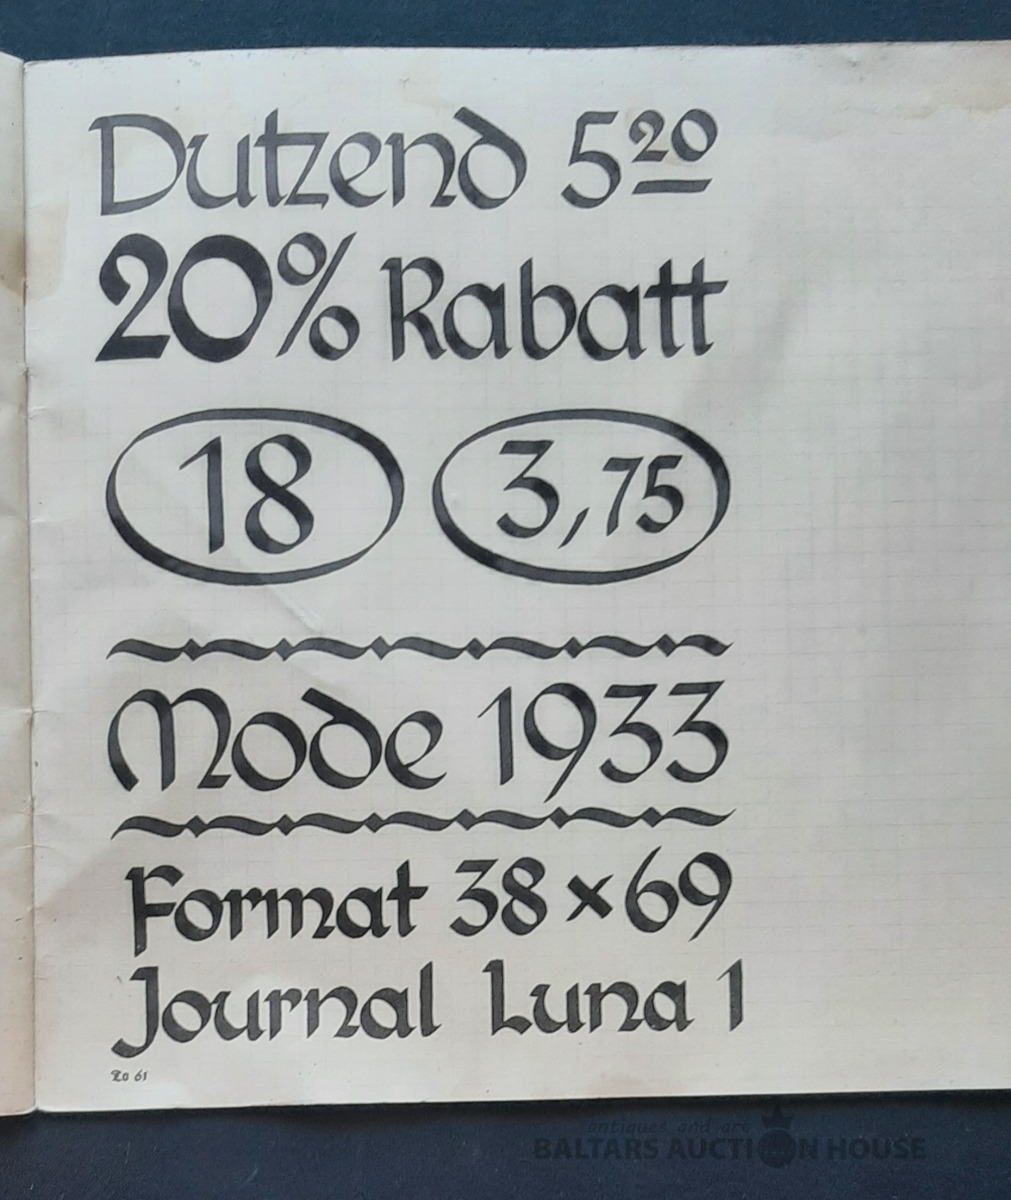 Dutzend 5 20
20% Rabatt
18 3,75
Mode 1933
Format 38×69
Journal Luna 1
antiques and art
BALTARS AUCTION HOUSE